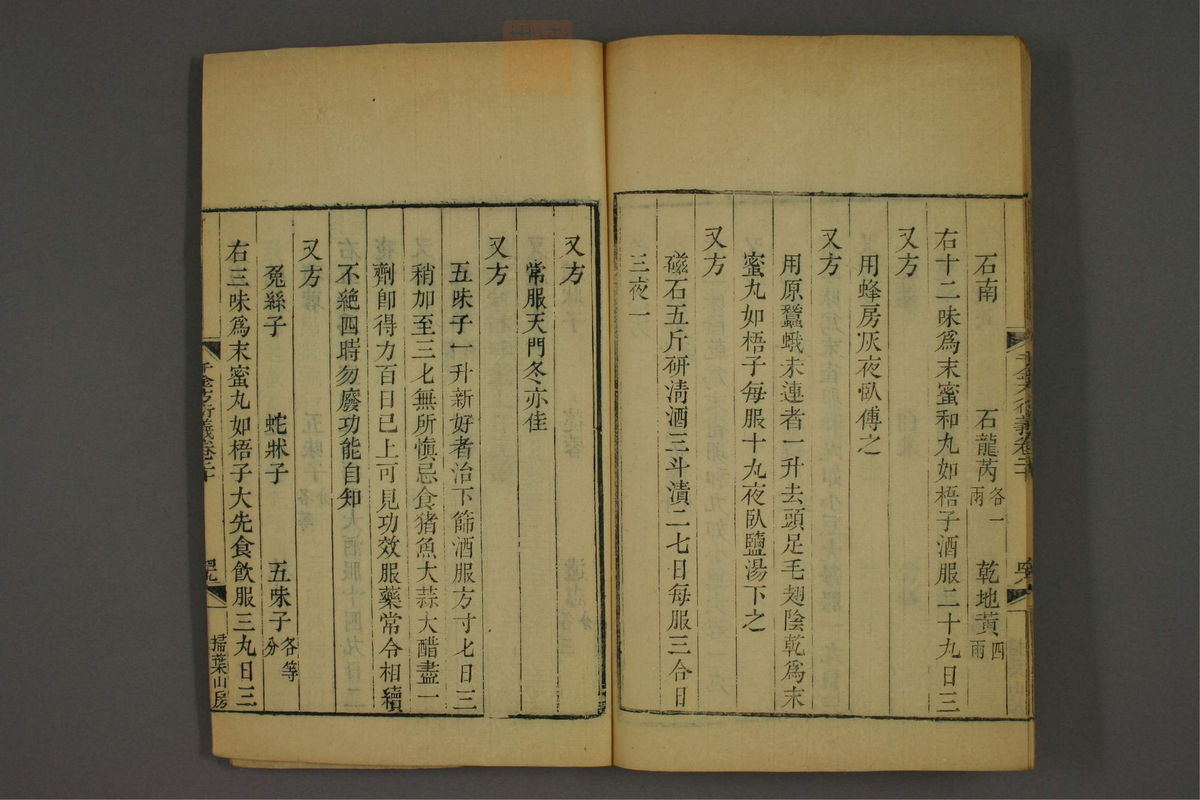 石南 石龍芮各一兩 乾地黃四兩
右十二味爲末蜜和丸如梧子酒服二十九日三
又方
用蜂房灰夜臥傅之
又方
用原蠶蛾未連者一升去頭足毛翅陰乾爲末
蜜丸如梧子每服十九夜臥鹽湯下之
又方
磁石五斤研淸酒三斗漬二七日每服三合日
三夜一
千金方衍義卷二十
又方
常服天門冬亦佳
又方
五味子一升新好者治下篩酒服方寸匕日三
稍加至三匕無所愼忌食猪魚大蒜大醋盡一
劑卽得力百日已上可見功效服藥常令相續
不絶四時勿廢功能自知
又方
兔絲子 蛇牀子 五味子各等分
右三味爲末蜜丸如梧子大先食飮服三丸日三
千金方衍義卷二十
掃葉山房